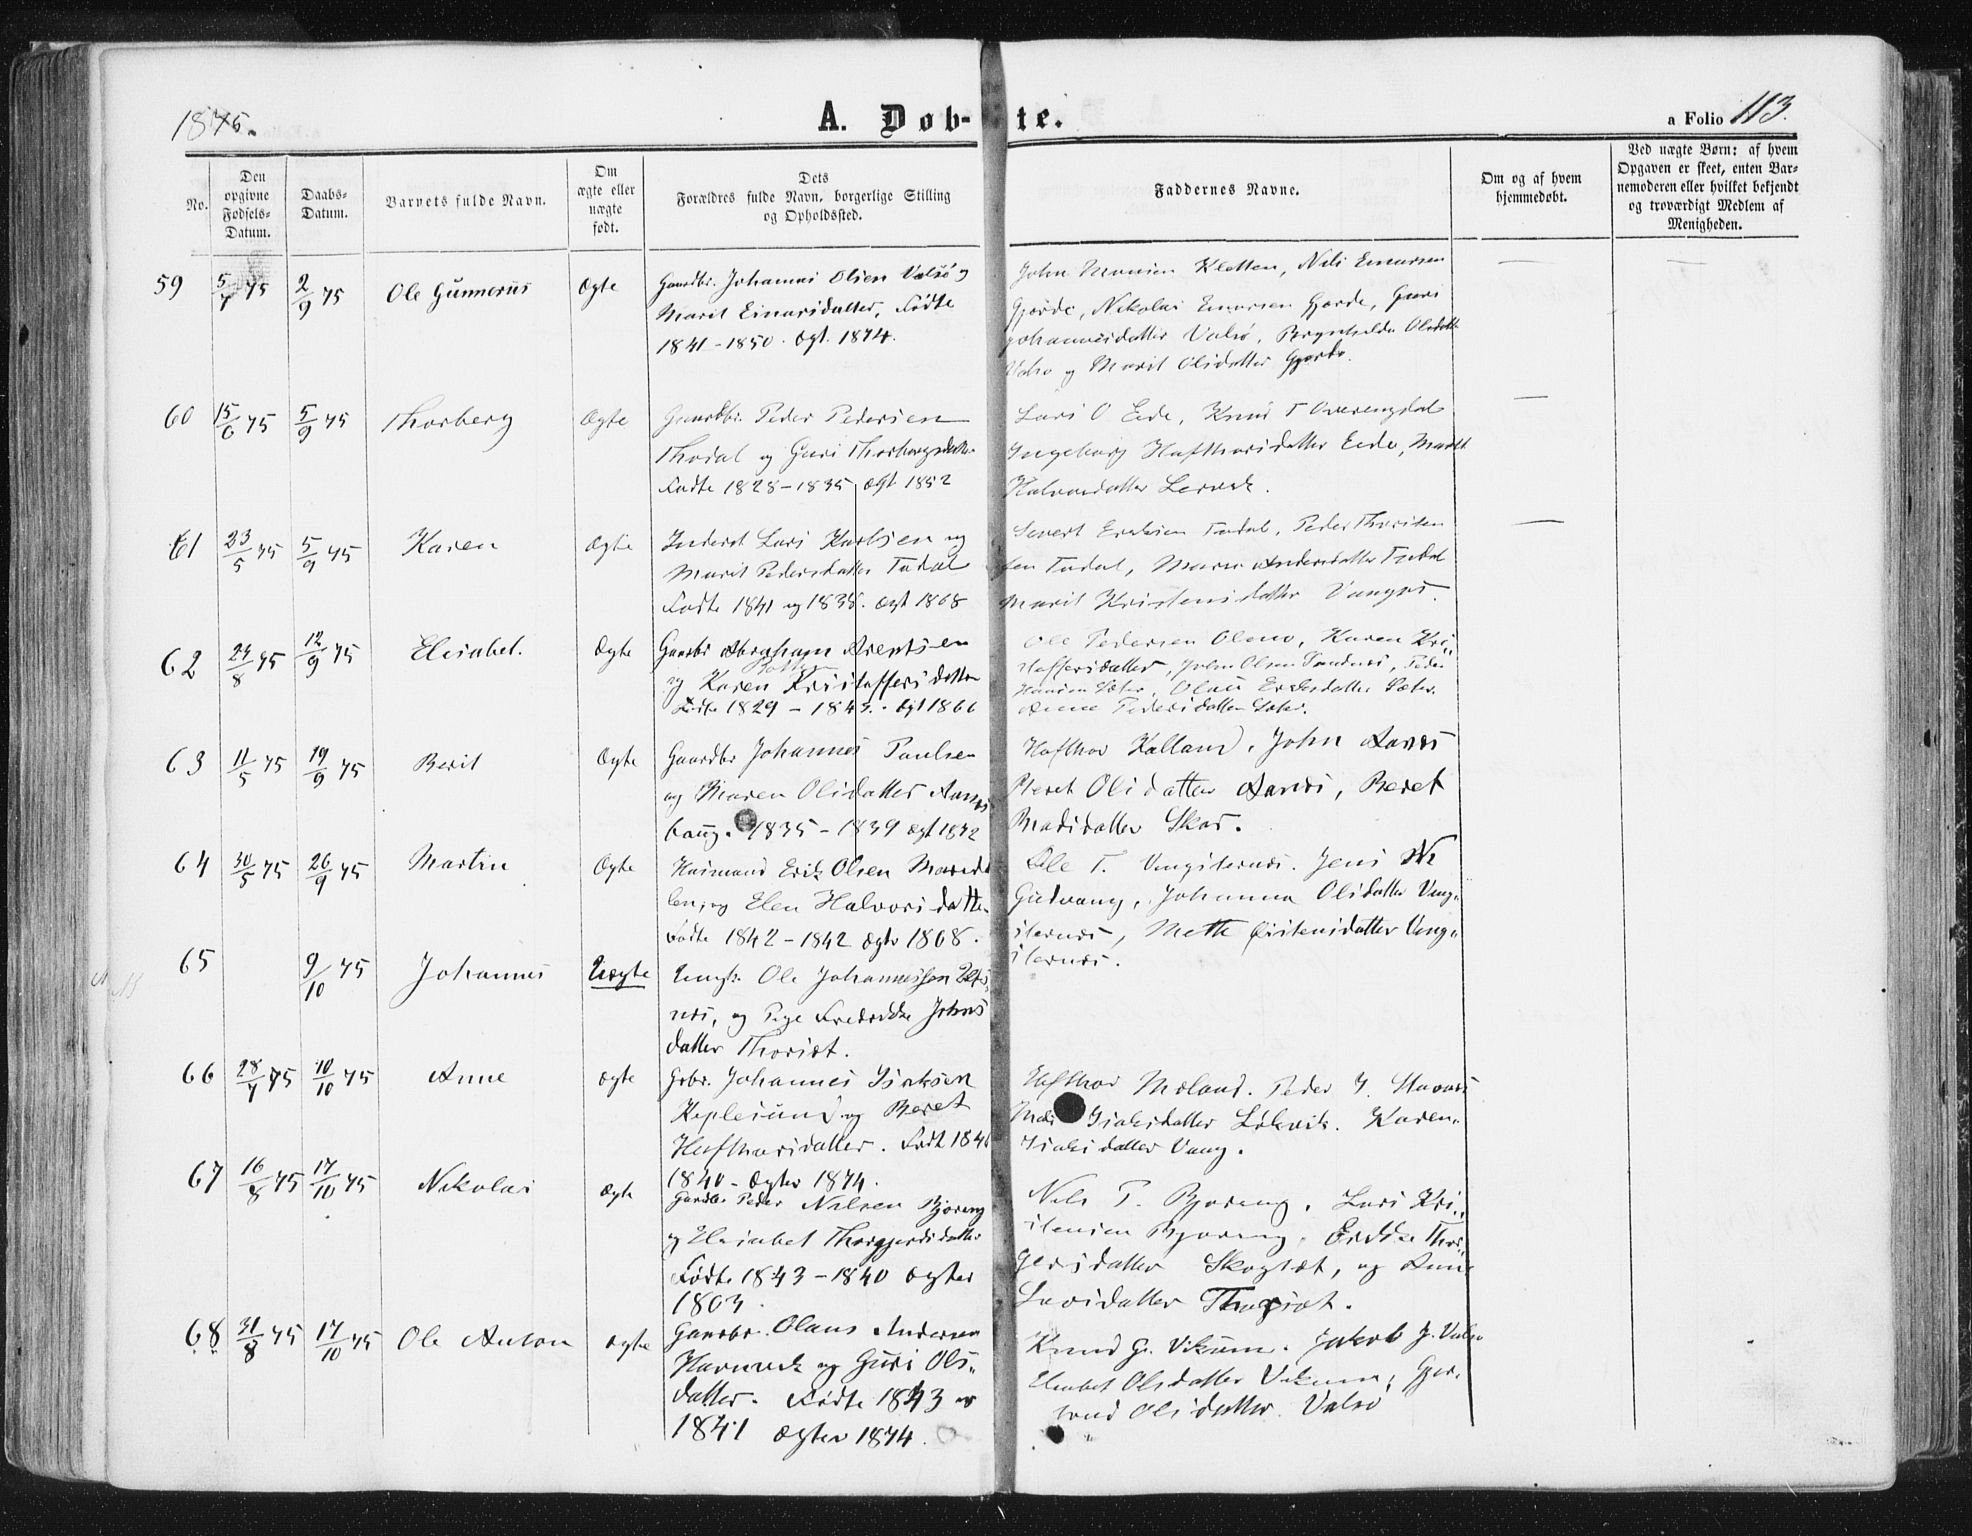 1875.
A. Døb-te.
a Folio 113.
No.
Den opgivne Fødsels-Datum.
Daabs-Datum.
Barnets fulde Navn.
Om ægte eller uægte født.
Dets Forældres fulde Navn, borgerlige Stilling og Opholdssted.
Faddernes Navne.
Om og af hvem hjemmedøbt.
Ved uægte Børn: af hvem Opgaven er skeet, enten Barnemoderen eller hvilket bekjendt og troværdigt Medlem af Menigheden.
59 5/7 75 2/9 75 Ole Gunnerus Ægte Gaardbr. Johannes Olsen Valsø og
Marit Einarsdatter, Fødte
1841 - 1850. Ægt. 1874.
John Kletten, Nils Einarsen
Gjørde, Nikolai Einarsen Gjærde, Guri
Johannesdatter Valsø, Brynhilda Olsdatt
Valsø og Marit Olsdatter Gjærde.
60 15/6 75 5/9 75 Thorberg Ægte Gaardbr. Peder Pedersen
Thodal og Guri Thorbergsdatter
Fødte 1828 - 1835 Ægt 1852
Lars O Eide, Knud T
Ingeborg Hafthorsdatter Eide, Marit
Halvorsdatter Lervik.
61 23/5 75 5/9 75 Karen Ægte Inderst Lars Karlsen og
Marit Pedersdatter Todal
Fødte 1841 og 1838. Ægt 1868
Sivert Eriksen Todal, Peder Thorsten
sen Todal, Maren Andersdatter Todal
Marit Kristensdatter
62 24/8 75 12/9 75 Elisabet. Ægte Gaardbr Abraham Arentsen
og Karen Kristoffersdatter
Fødte 1829 - 1843. Ægt 1866
Ole Pedersen, Karen Kri„
stoffersdatter, John Olsen Sandnes, Peder
Hansen Sæter, Olau Eriksdatter Sæter.
Anne Pedersdatter Sæter.
63 11/5 75 19/9 75 Berit Ægte Gaardbr Johannes Paulsen
og Maren Olsdatter Aarnes
haug. 1835 - 1839 ægt 1872
Hafthor Halland, John Aarnes
Beret Olsdatter Aarnes, Beret
Madsdatter Skar.
64 30/5 75 26/9 75 Martin Ægte Husmand Erik Olsen
len, og Elen Halvorsdatter
Fødte 1842 - 1842 Ægte 1868.
Ole T. Vengsternes. Jens
Gulvang, Johanna Olsdatter Veng„
sternes, Mette Cristensdatter Veng„
sternes.
65 9/10 75 Johannes Uægte Ungk. Ole Johannessen
nes, og Pige Fredrikke Johns
datter Thorsæt.
66 28/7 75 10/10 75 Anne ægte Grbr. Johannes Isaksen
Keplesund og Beret
Hafthorsdatter. Født 1846
1840 - Ægtev 1874.
Hafthor Møland. Peder J. Aarnes
Isaksdatter Løkvik. Karen„
Isaksdatter Vaag.
67 16/8 75 17/10 75 Nikolai ægte Gaardbr Peder Nilsen Bjøreng
og Elisabet Thorgjersdatter
Fødte 1843 - 1840 Ægtev
1863.
Nils P. Bjøreng. Lars Kri„
stensen Bjøreng, Erikke Thor„
gersdatter Skogsæt, og Anne
Larsdatter Thorsæt.
68 31/8 75 17/10 75 Ole Anton ægte Gaardbr. Olaus Andersen
Hamnvik og Guri Ols„
datter. Fødte 1843 og
1841 ægtev 1874.
Knud G. Vikum. Jakob J. Valsø
Elisabet Olsdatter Vikum, Gjer„
trud Olsdatter. Valsø